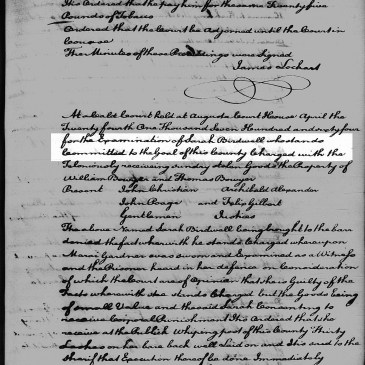 It is Ordered that he pay him for the same Twenty five
Pounds of Tobacco
Ordered that the Court be Adjourned until the Court in
Course
The Minutes of these Proceedings were Signed
James Lockart
At a Called Court Held at Augusta Court House April the
Twenty fourth One Thousand Seven Hundred and sixty four
for the Examination of Sarah Birdwell who stands
Committed to the Goal of this County Charged with the
Feloniously receiving sundry stolen Goods the Property of
William Bowyer and Thomas Bowyer
Present John Christian Archibald Alexander
John Poage and Felix Gilbert
Gentlemen Justices
The above Named Sarah Birdwell being brought to the barr
denied the fact wherewith he stands Charged whereupon
Gardner was sworn and Examined as a Witness
and the Prisoner heard in her defence on Consideration
of which the Court are of Opinion that she is Guilty of the
Facts wherewith she stands Charged but the Goods being
of small Value and the said Sarah Consenting to
receive Corporal Punishment It is Ordered that she
receive at the Publick Whiping post of this County Thirty
Lashes on her bare back well laid on and it is said to the
sherif that Execution thereof be done Immediately